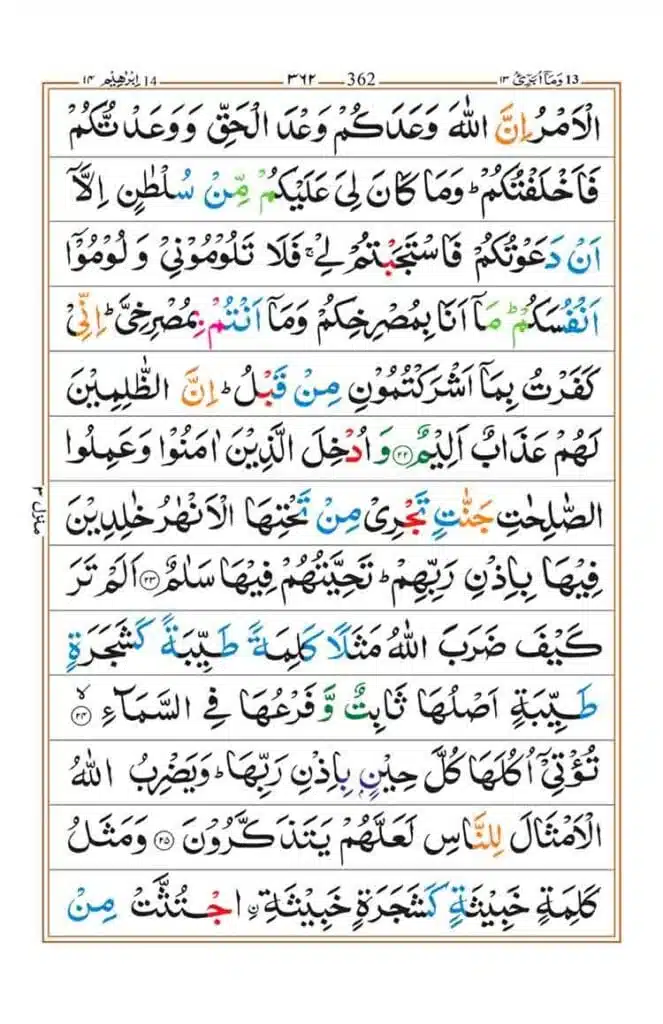 13 وَمَآ اُبَرِّئُ ١٣ 362 ٣٦٢ 14 اِبْرٰهِيْم ١٤
الْاَمْرُ اِنَّ اللّٰهَ وَعَدَكُمْ وَعْدَ الْحَقِّ وَوَعَدْتُّكُمْ
فَاَخْلَفْتُكُمْ ؕ وَمَا كَانَ لِيَ عَلَيْكُمْ مِّنْ سُلْطٰنٍ اِلَّاۤ
اَنْ دَعَوْتُكُمْ فَاسْتَجَبْتُمْ لِيْ ۚ فَلَا تَلُوْمُوْنِيْ وَلُوْمُوْۤا
اَنْفُسَكُمْ ؕ مَاۤ اَنَا بِمُصْرِخِكُمْ وَمَاۤ اَنْتُمْ بِمُصْرِخِيَّ ؕ اِنِّيْ
كَفَرْتُ بِمَاۤ اَشْرَكْتُمُوْنِ مِنْ قَبْلُ ؕ اِنَّ الظّٰلِمِيْنَ
لَهُمْ عَذَابٌ اَلِيْمٌ ۝٢٢ وَاُدْخِلَ الَّذِيْنَ اٰمَنُوْا وَعَمِلُوا
الصّٰلِحٰتِ جَنّٰتٍ تَجْرِيْ مِنْ تَحْتِهَا الْاَنْهٰرُ خٰلِدِيْنَ
فِيْهَا بِاِذْنِ رَبِّهِمْ ؕ تَحِيَّتُهُمْ فِيْهَا سَلٰمٌ ۝٢٣ اَلَمْ تَرَ
كَيْفَ ضَرَبَ اللّٰهُ مَثَلًا كَلِمَةً طَيِّبَةً كَشَجَرَةٍ
طَيِّبَةٍ اَصْلُهَا ثَابِتٌ وَّفَرْعُهَا فِي السَّمَآءِ ۙ ۝٢٤
تُؤْتِيْۤ اُكُلَهَا كُلَّ حِيْنٍۭ بِاِذْنِ رَبِّهَا ؕ وَيَضْرِبُ اللّٰهُ
الْاَمْثَالَ لِلنَّاسِ لَعَلَّهُمْ يَتَذَكَّرُوْنَ ۝٢٥ وَمَثَلُ
كَلِمَةٍ خَبِيْثَةٍ كَشَجَرَةٍ خَبِيْثَةِ ۨاجْتُثَّتْ مِنْ
منزل ٣